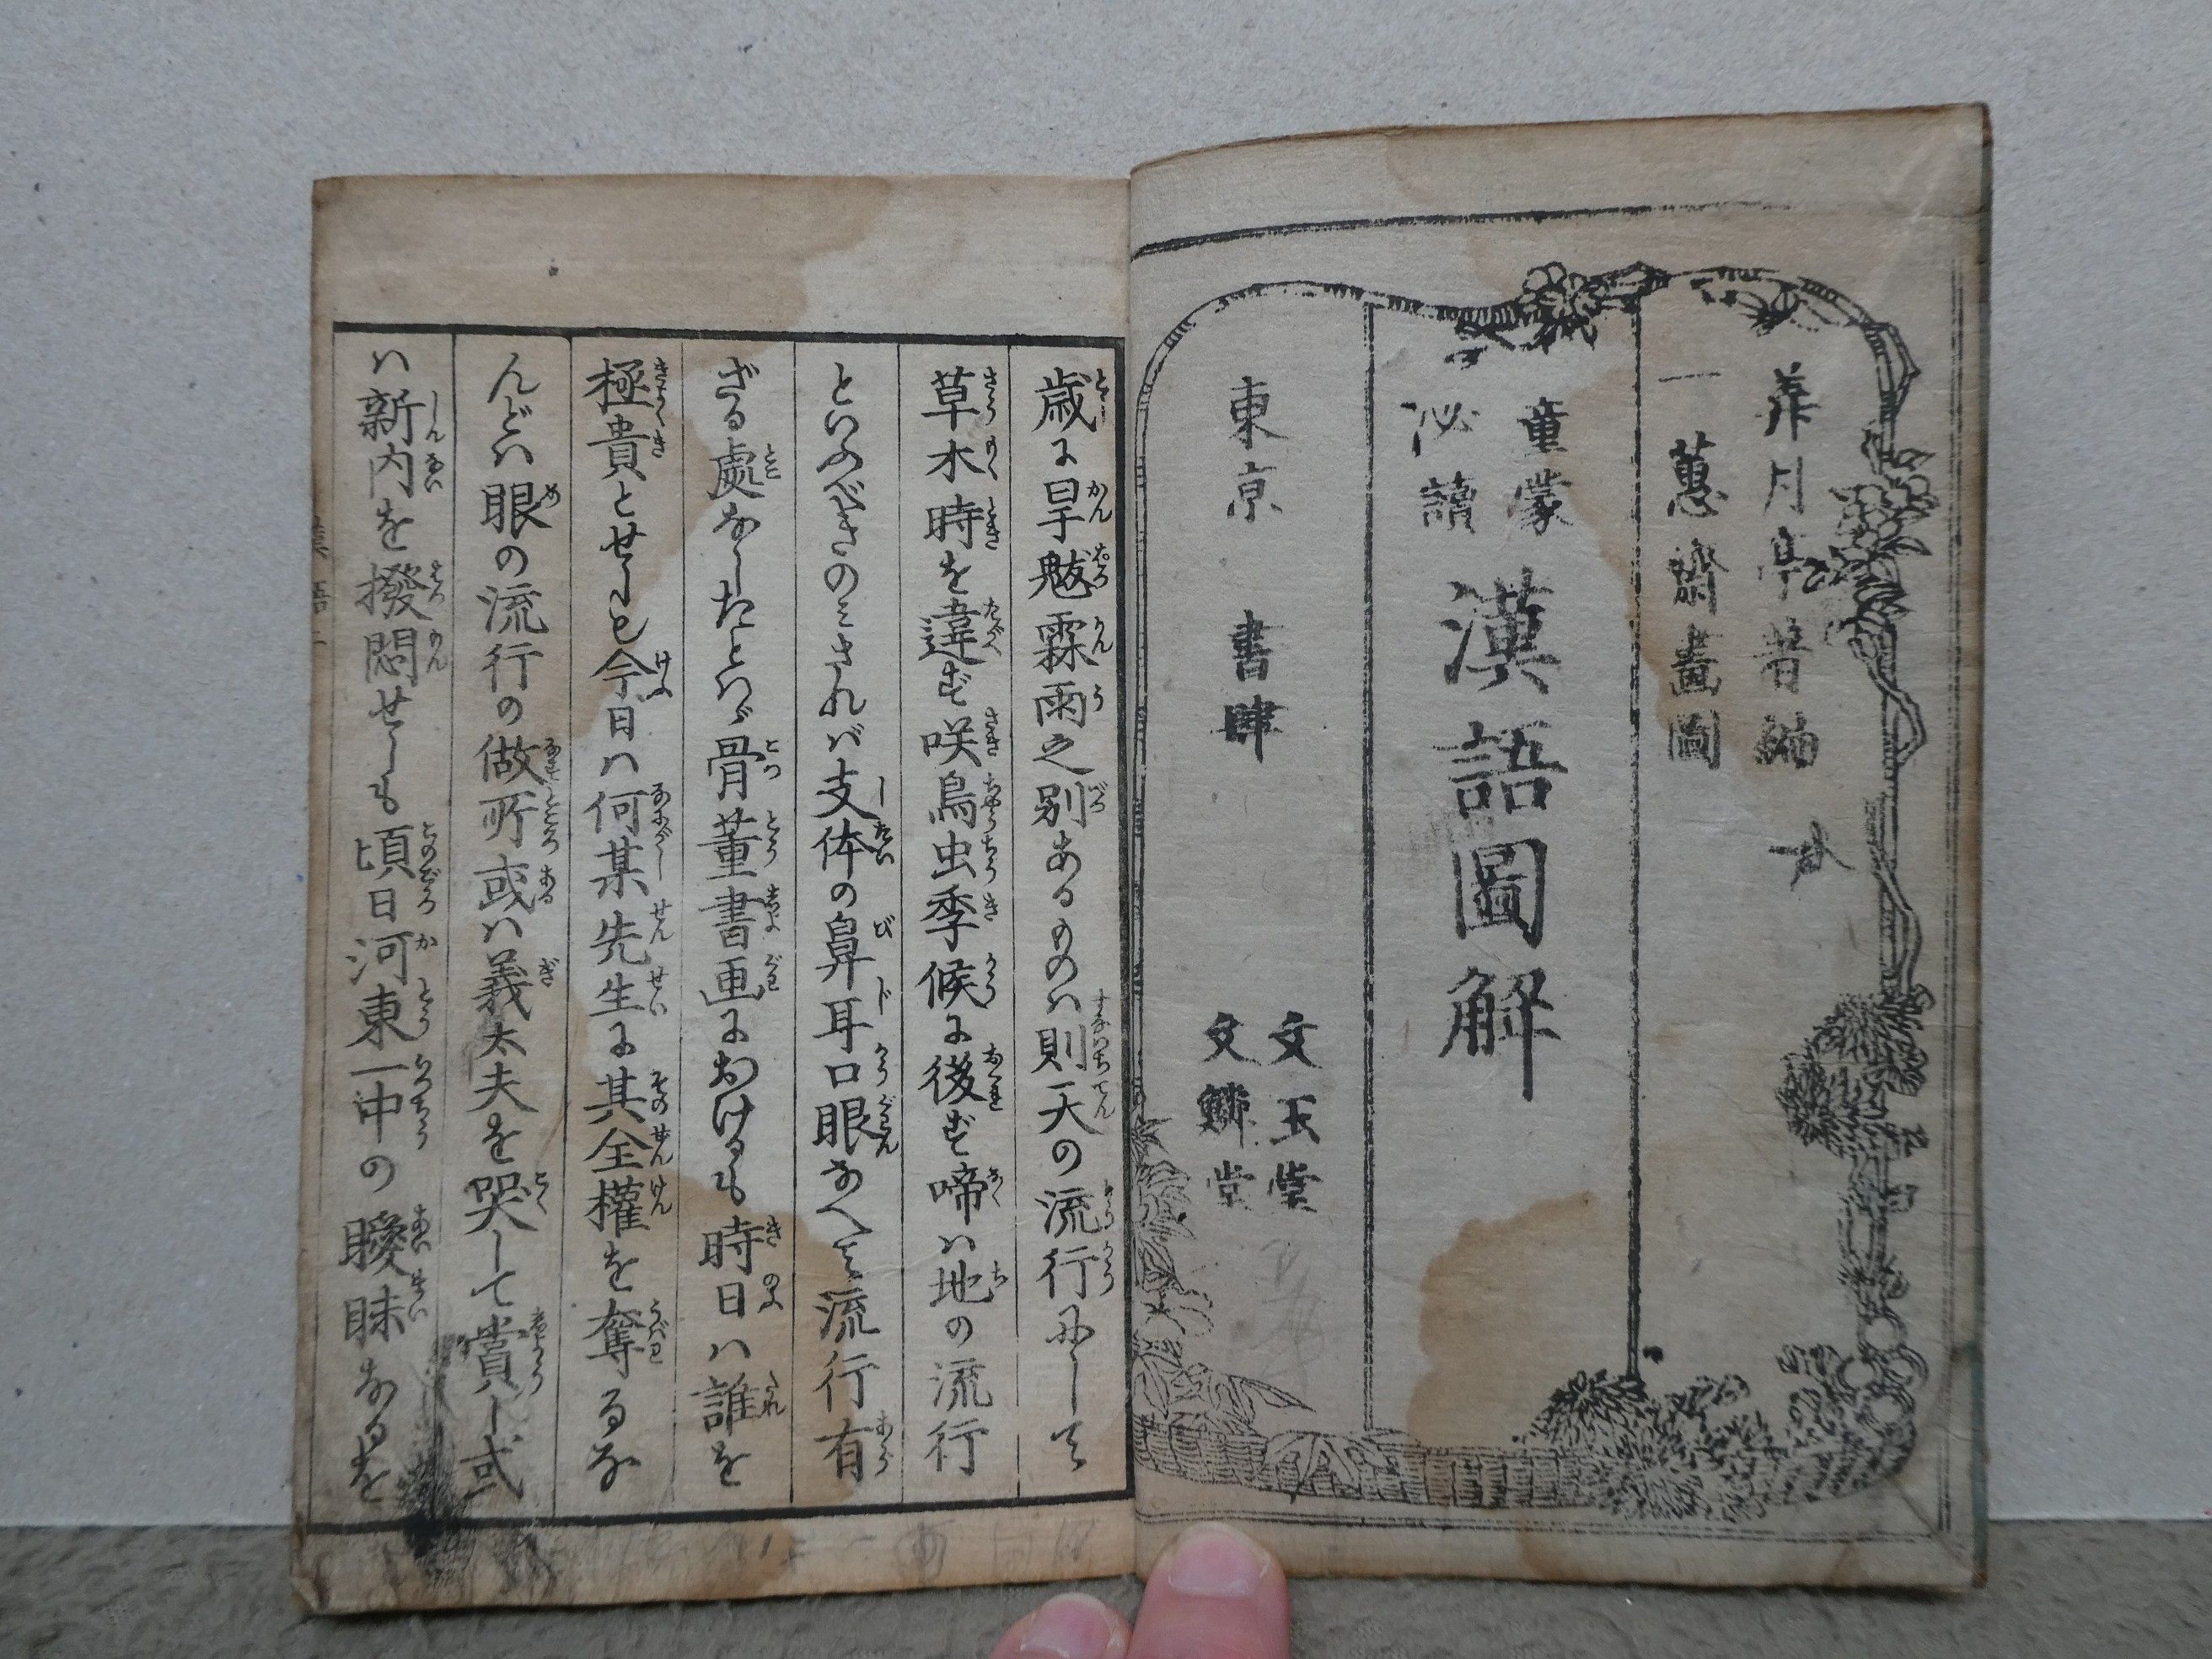 弄月亭著編
一蕙齋畫圖
童蒙
必讀
漢語圖解
東京 書肆
文玉堂
文麟堂
歳に旱魃霖雨之別あるものハ則天の流行にして
草木時を違ず咲鳥虫季候に後ず啼ハ地の流行
といふべきのミされバ支体の鼻耳口眼なへて流行有
ざる處なしたとハヾ骨董書画におけるも時日ハ誰を
極貴とせしも今日ハ何某先生に其全權を奪るな
んどハ眼の流行の做所或ハ義太夫を哭して賞し或
ハ新内を撥悶せしも頃日河東一中の曖昧なるを